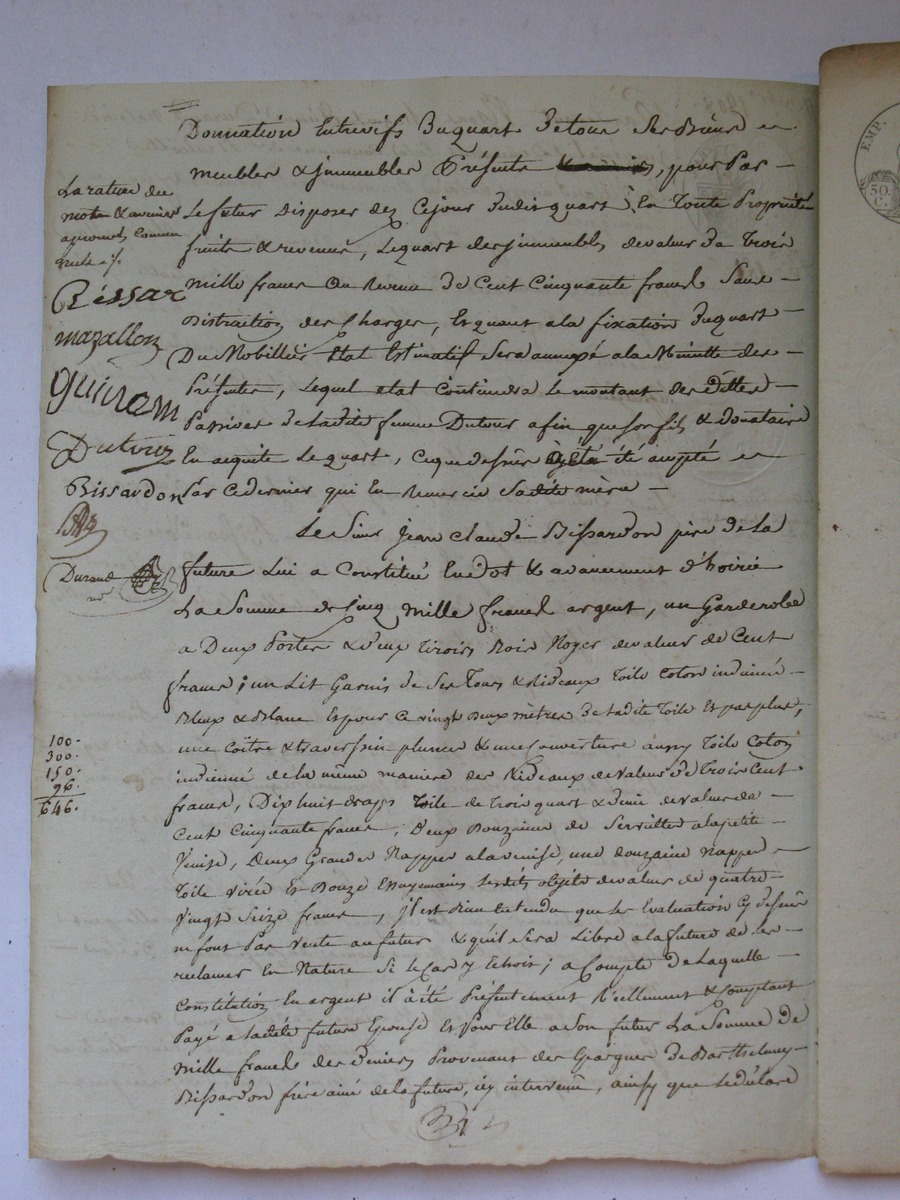 Donnation Entrevifs Du quart De tous Ses Biens en
meubles & immeubles Présents , pour Par
Le futur Disposer dez Cejour Dudit quart En Toute Propriété
fruits & revenus, Lequart des immeubles devaleur de Trois
mille francs Ou Revenu De Cent Cinquante francs Sans
Distraction des Charges, Et quant ala fixation Duquart
Du Mobillier Etat Estimatif Sera annexé ala Minutte des
Présentes, Lequel etat Contiendra Le montant des dettes
Passives de Ladite femme Dutour afin que son fils & donataire
En acquite Le quart, Ceque dessus été accepté
Par Cedernier qui En Remercie Sadite mère
Le Sieur Jean Claude Bissardon père de La
future Lui a Constitué En dot & avancement d'hoirie
La Somme de Cinq mille francs argent, un Garderobe
a Deux Portes & deux Tiroirs Bois Noyer devaleur de Cent
francs ; un Lit Garnis de Ses Tours & Rideaux Toile Coton indienné
Bleux & Blanc Et pour Ce vingt deux mètres De Ladite Toile Et pas plus,
une Coître & traversin plumes & une Couverture aussy Toile Coton
indienné de la même manière des Rideaux de Valeur De Trois Cent
francs, Dix huit draps Toile de Trois quart & demi devaleur de
Cent Cinquante francs, Deux Douzaines de Serviettes alapetite
Venise, Deux Grandes Nappes alavenise, une douzaine Nappes
Toile Et Douze Essuyemains Lesdits objets devaleur de quatre
Vingt Seize francs, il est bien Entendu que Les Evaluations Cy dessus
ne font Pas Vente au futur & qu'il Sera Libre ala future de Les
reclamer En Nature Si le Cas y Echoit ; a Compte De Laquelle
Constitution En argent il à été Présentement Réellement & Comptant
Payé a Ladite future Epouse Et Pour Elle a Son futur La Somme De
Mille francs des deniers Provenant des Epargnes De Barthelemy
Bissardon frère ainé de la future, icy intervenu, ainsy que Le déclare
La rature du
mot
aprouvés Comme
nuls ./.
Bissar
mazallon
Guinam
Dutour
Bissardon
Durand
nore
100.
300.
150.
96.
646.
EMP.
50.
C.